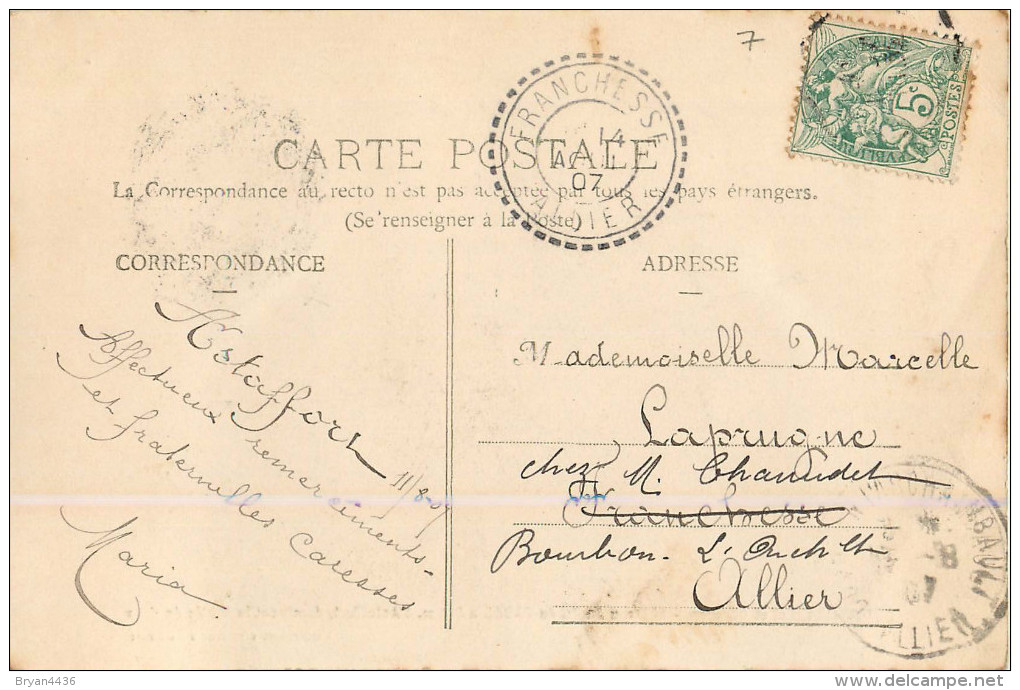 7
FRANCHESSE
14
AOUT
07
ALLIER
5c
POSTES
CARTE POSTALE
La Correspondance au recto n'est pas acceptée par tous les pays étrangers.
(Se renseigner à la Poste)
CORRESPONDANCE
ADRESSE
Astaffort 11/8 07
Affectueux remerciements
et fraternelles caresses
Maria
Mademoiselle Marcelle
Laprugne
chez M. Chamudet
Franchesse
Bourbon - L'Archlt
Allier
Bryan4436
www.delcampe.net